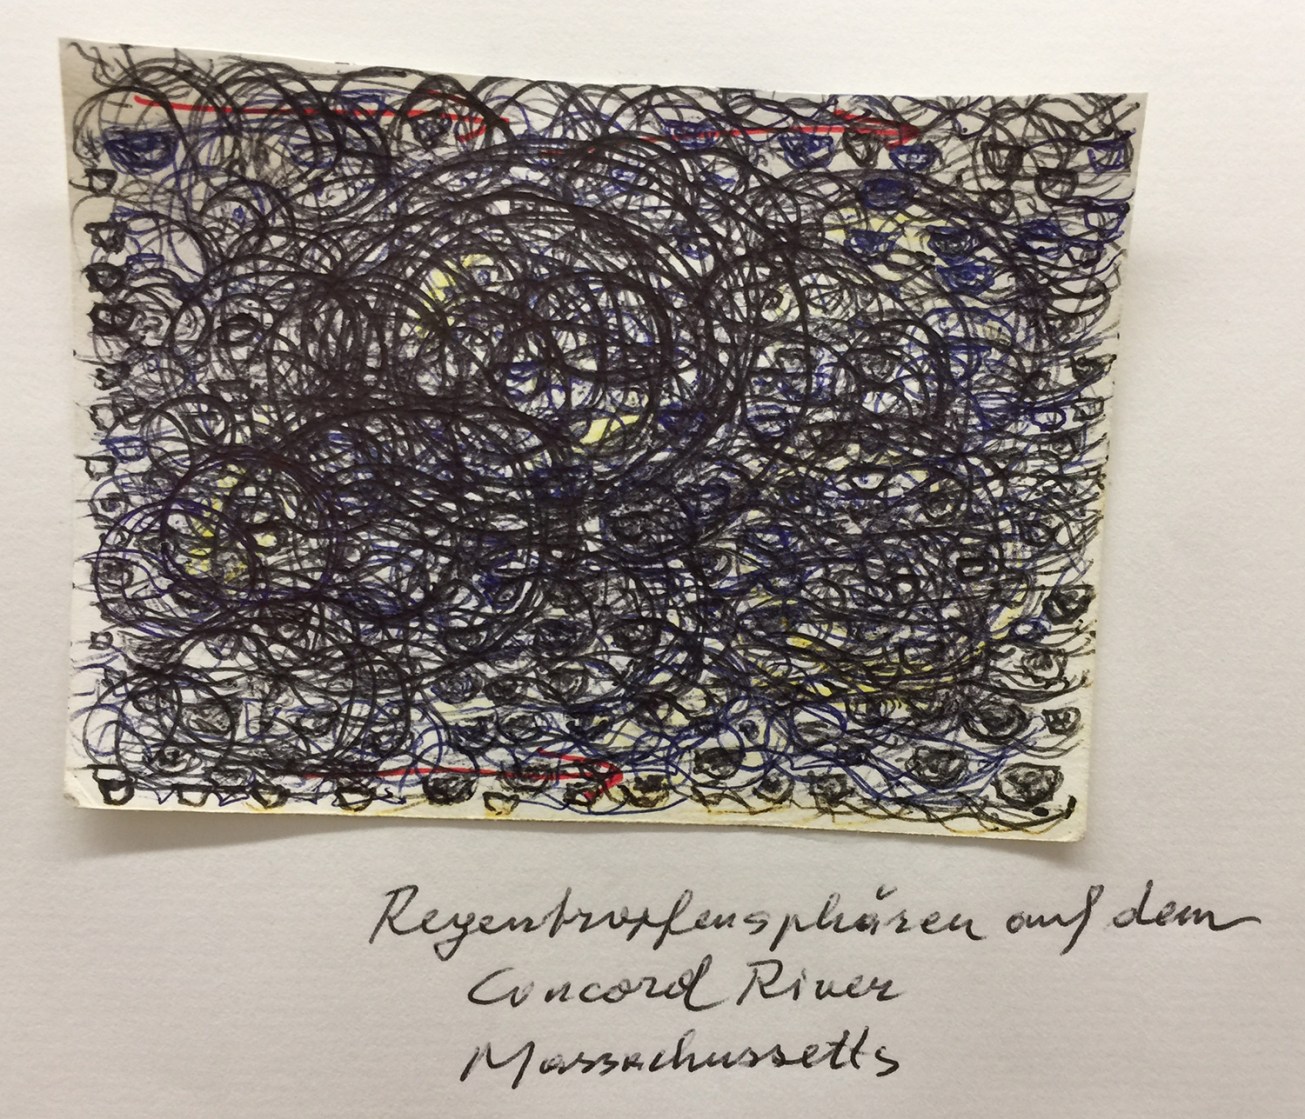 Regentropfensphären auf dem
Concord River
Massachussetts